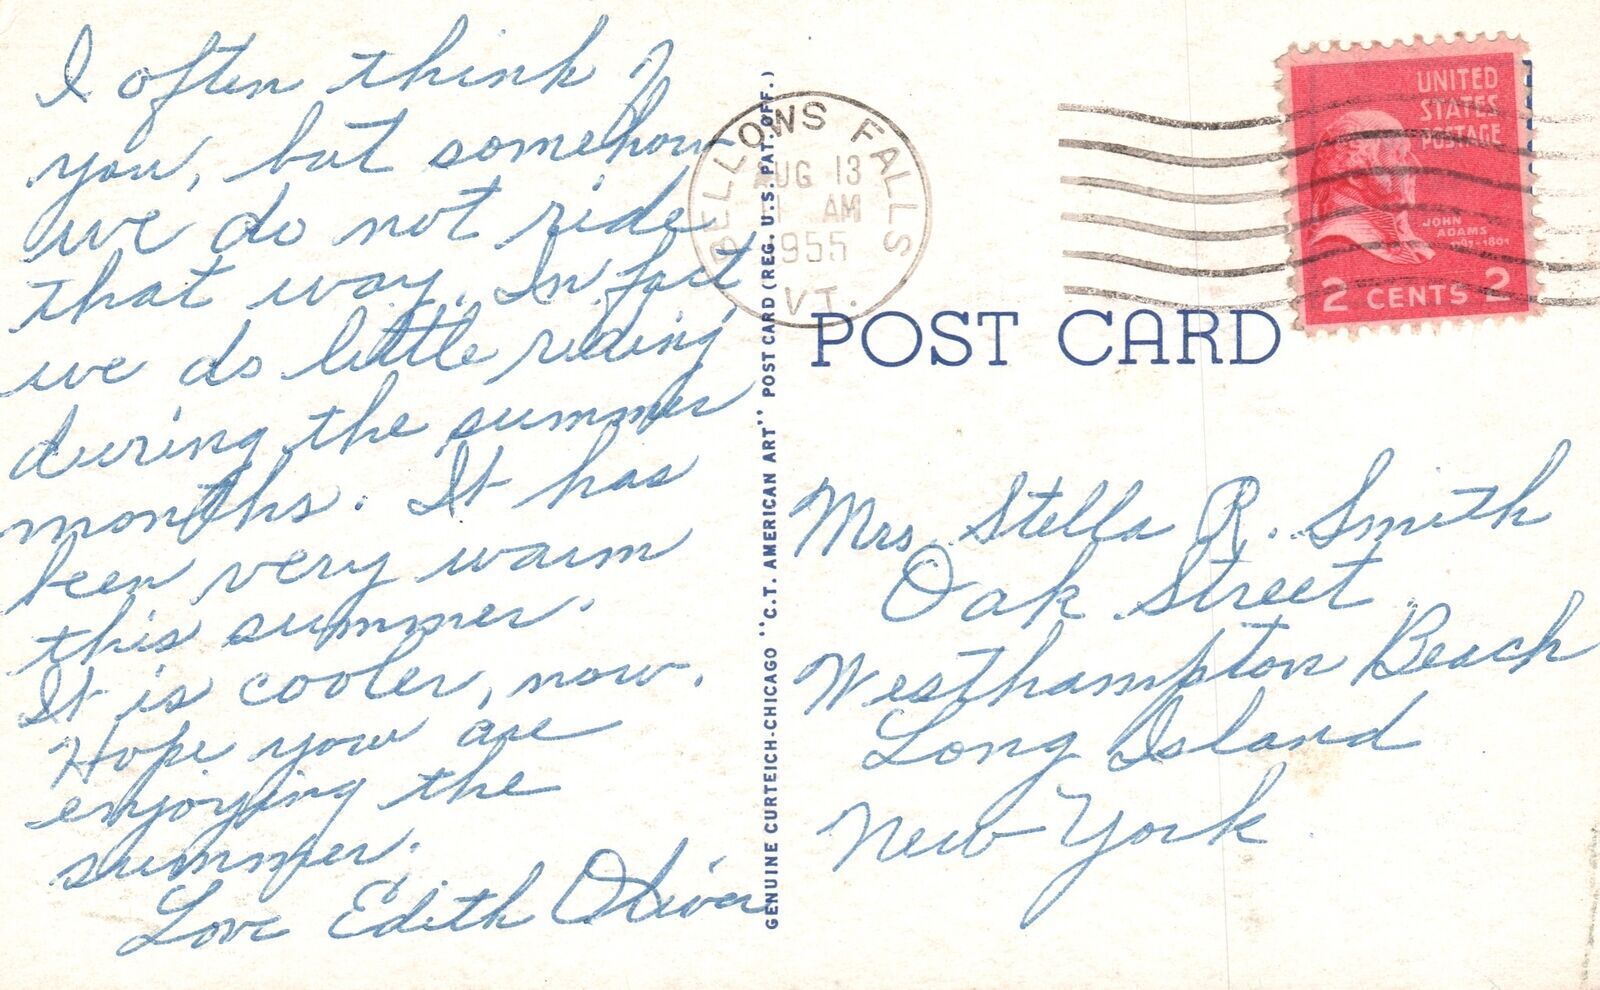 I often think of
you, but somehow
we do not ride
that way. In fact
we do little riding
during the summer
months. It has
been very warm
this summer.
It is cooler, now.
Hope you are
enjoying the
summer.
Love Edith Oliver
GENUINE CURTEICH-CHICAGO "C.T. AMERICAN ART" POST CARD (REG. U.S. PAT. OFF.)
BELLOWS FALLS
AUG 13
AM
1955
VT.
UNITED
STATES
POSTAGE
JOHN
ADAMS
1797-1801
2 CENTS 2
POST CARD
Mrs. Stella R. Smith
Oak Street
Westhampton Beach
Long Island
New York